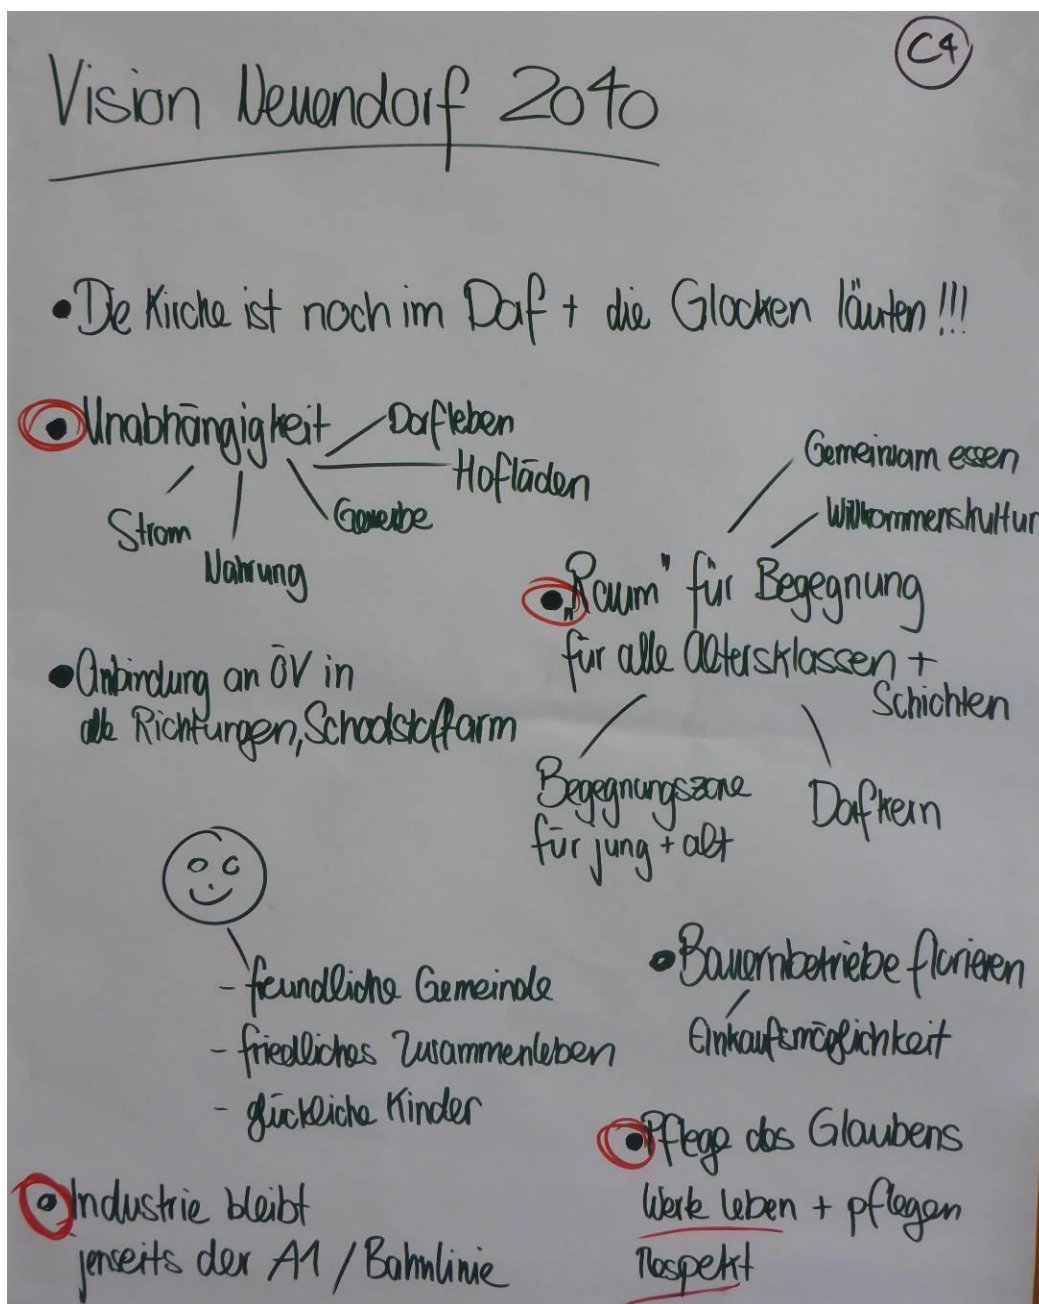 C4
Vision Neuendorf 2040
• Die Kirche ist noch im Dorf + die Glocken läuten!!!
• Unabhängigkeit
Dorfleben
Hofläden
Gewerbe
Strom
Nahrung
Gemeinsam essen
Willkommenskultur
• „Raum" für Begegnung
für alle Altersklassen +
Schichten
Begegnungszone
für jung + alt
Dorfkern
• Anbindung an ÖV in
alle Richtungen, Schadstoffarm
- freundliche Gemeinde
- friedliches Zusammenleben
- glückliche Kinder
• Bauernbetriebe florieren
Einkaufsmöglichkeit
• Pflege des Glaubens
Werte leben + pflegen
Respekt
• Industrie bleibt
jenseits der A1 / Bahnlinie